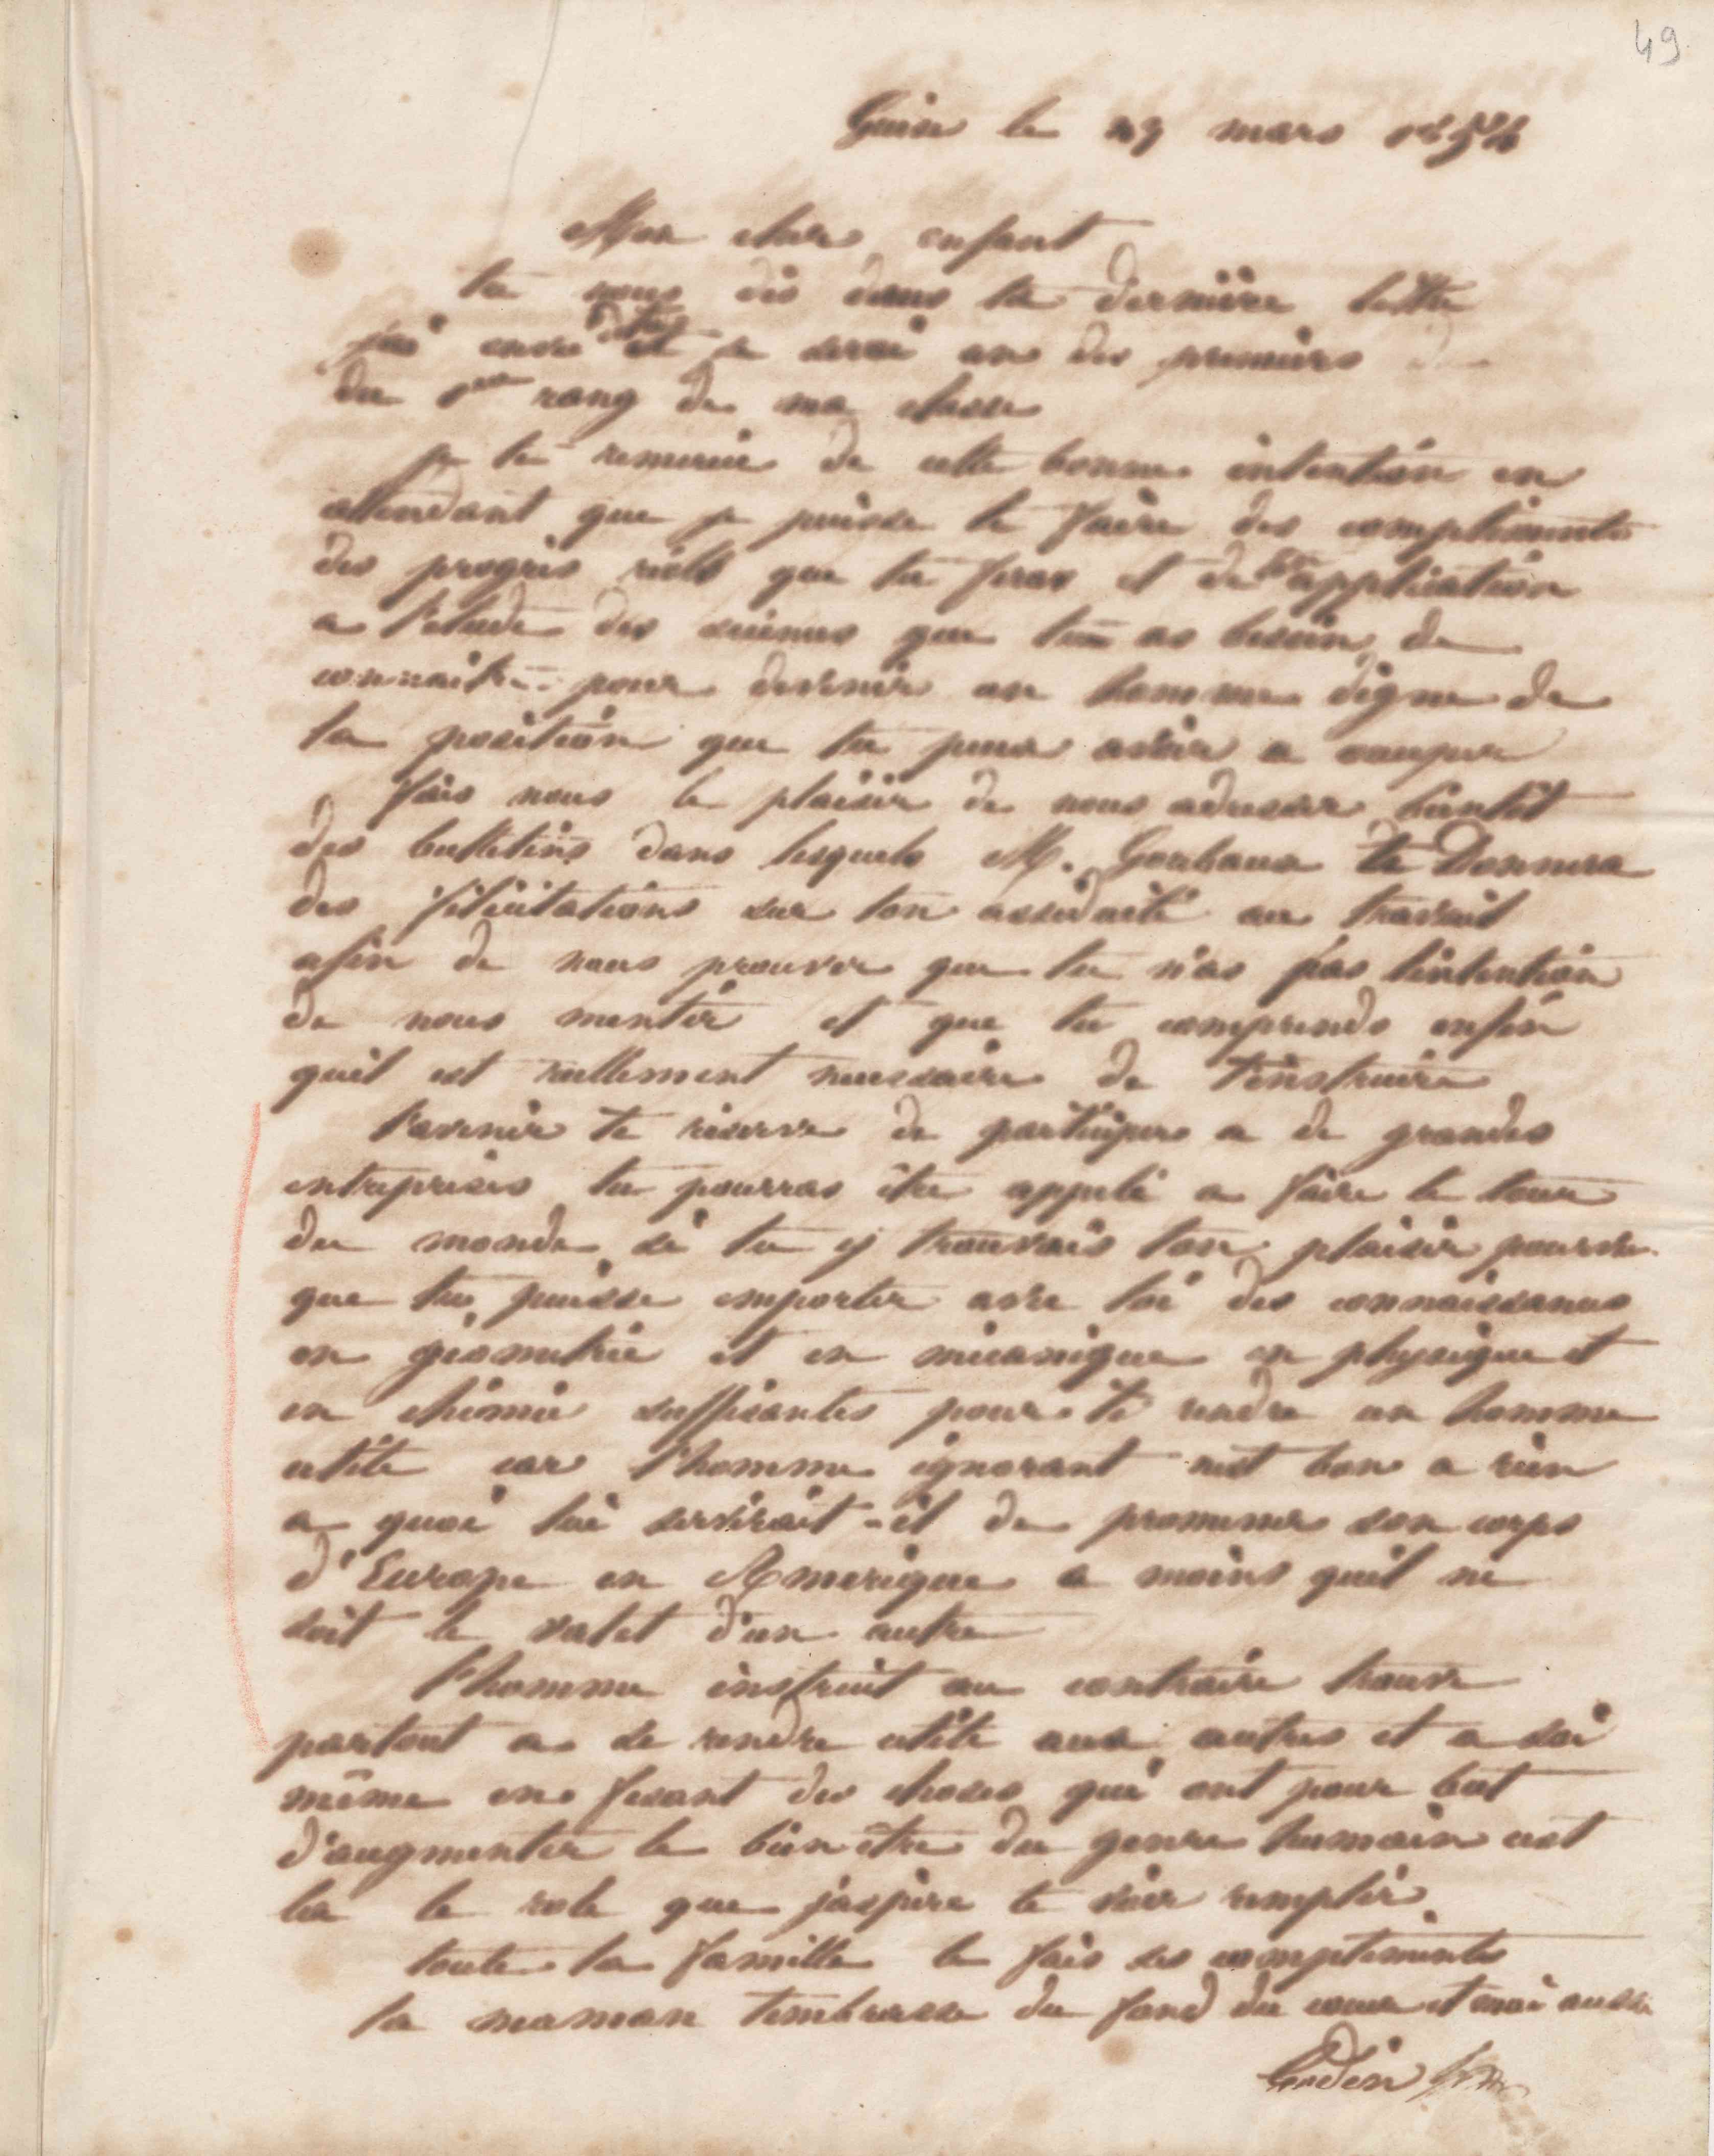 49
Guise le 29 mars 1854
Mon cher enfant
tu nous dis dans ta dernière lettre
j'ai envie d'être et je serai un des premiers
du 1er rang de ma classe
je te remercie de cette bonne intention en
attendant que je puisse te faire des compliments
des progrès réels que tu feras et de ton application
a l'étude des sciences que tu as besoin de
connaitre pour devenir un homme digne de
la position que tu peux avoir a occuper
fais nous le plaisir de nous adresser bientôt
des bulletins dans lesquels M. Goubaux te donnera
des félicitations sur ton assiduité au travail
afin de nous prouver que tu n'as pas l'intention
de nous mentir et que tu comprends enfin
quil est réellement necessaire de t'instruire
l'avenir te réserve de participer a de grandes
entreprises tu pourras être appelé a faire le tour
du monde si tu y trouvais ton plaisir pourvu
que tu puisse emporter avec toi des connaissances
en géométrie et en mécanique en physique et
en chimie suffisantes pour te rendre un homme
utile car l'homme ignorant nest bon a rien
a quoi lui servirait-il de promener son corps
d'Europe en Amerique a moins quil ne
soit le valet d'un autre
l'homme instruit au contraire trouve
partout a se rendre utile aux autres et a soi
même en fesant des choses qui ont pour but
d'augmenter le bien être du genre humain cest
la le role que j'aspire te voir remplir
toute la famille te fais ses compliments
ta maman t'embrasse du fond du coeur et moi aussi
Godin